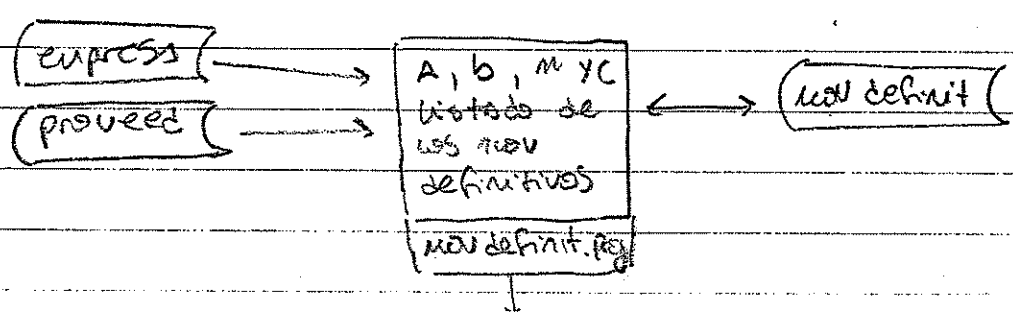 empresa
proveed
A, b, m y c
Listado de
los mov
definitivos
movdefinit.prg
mov definit